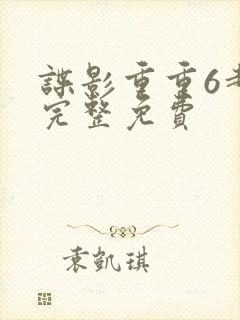 諜影重重6
完整免費
袁凱琪